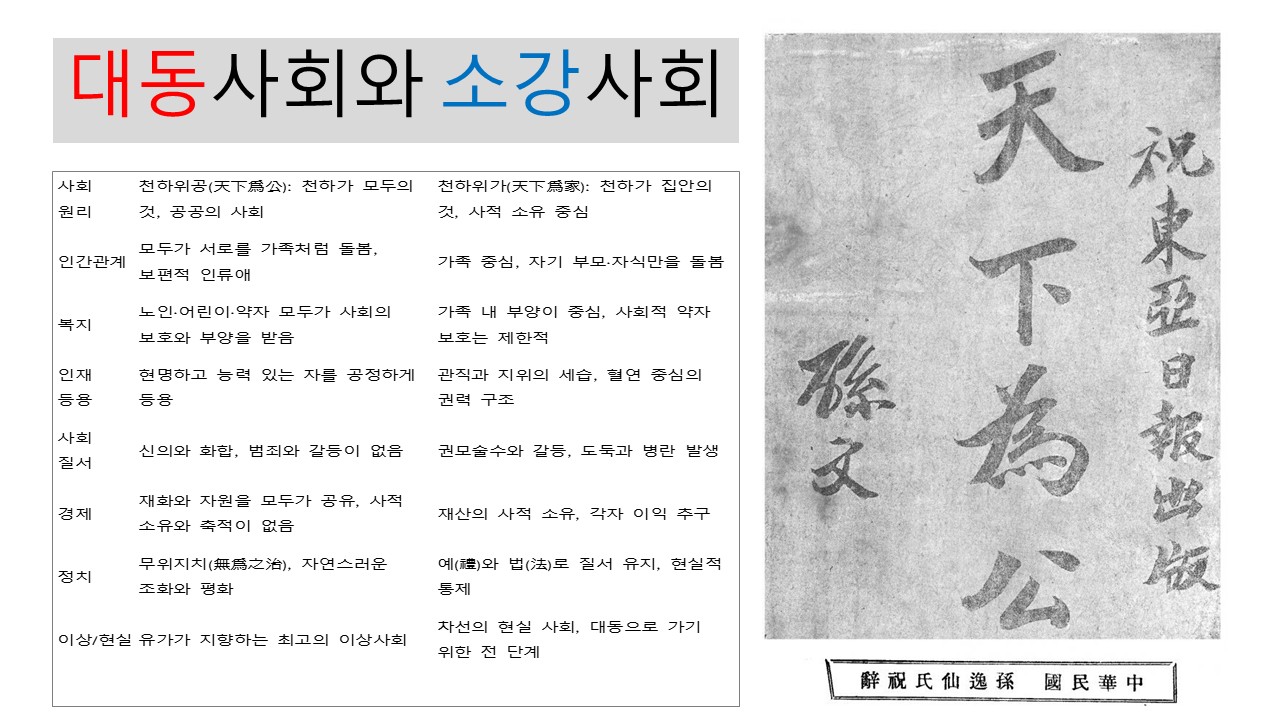 대동사회와 소강사회
사회 원리 천하위공(天下爲公): 천하가 모두의 것, 공공의 사회 천하위가(天下爲家): 천하가 집안의 것, 사적 소유 중심
인간관계 모두가 서로를 가족처럼 돌봄, 보편적 인류애 가족 중심, 자기 부모·자식만을 돌봄
복지 노인·어린이·약자 모두가 사회의 보호와 부양을 받음 가족 내 부양이 중심, 사회적 약자 보호는 제한적
인재 등용 현명하고 능력 있는 자를 공정하게 등용 관직과 지위의 세습, 혈연 중심의 권력 구조
사회 질서 신의와 화합, 범죄와 갈등이 없음 권모술수와 갈등, 도둑과 병란 발생
경제 재화와 자원을 모두가 공유, 사적 소유와 축적이 없음 재산의 사적 소유, 각자 이익 추구
정치 무위지치(無爲之治), 자연스러운 조화와 평화 예(禮)와 법(法)로 질서 유지, 현실적 통제
이상/현실 유가가 지향하는 최고의 이상사회 차선의 현실 사회, 대동으로 가기 위한 전 단계
祝東亞日報出版
天下為公
孫文
中華民國 孫逸仙氏祝辭